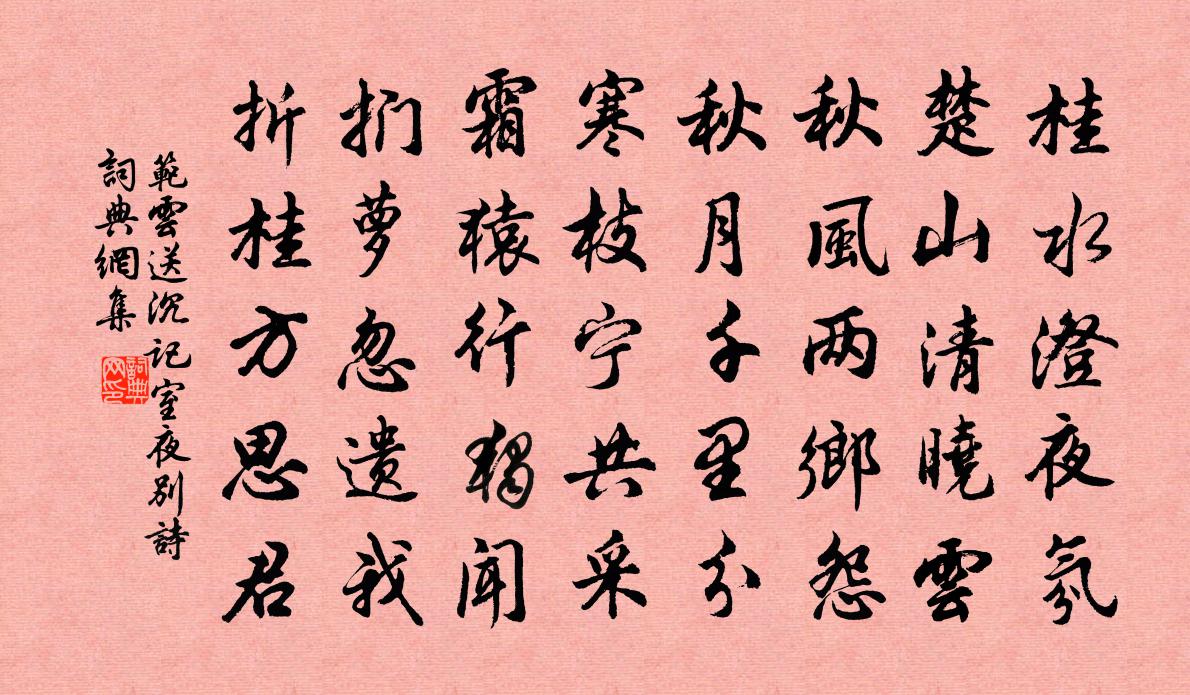 桂水澄夜氛
楚山清曉雲
秋風两鄉怨
秋月千里分
寒枝宁共采
霜猿行獨聞
扪萝忽遗我
折桂方思君
範雲送沉記室夜別詩
詞典網集
詞典网印